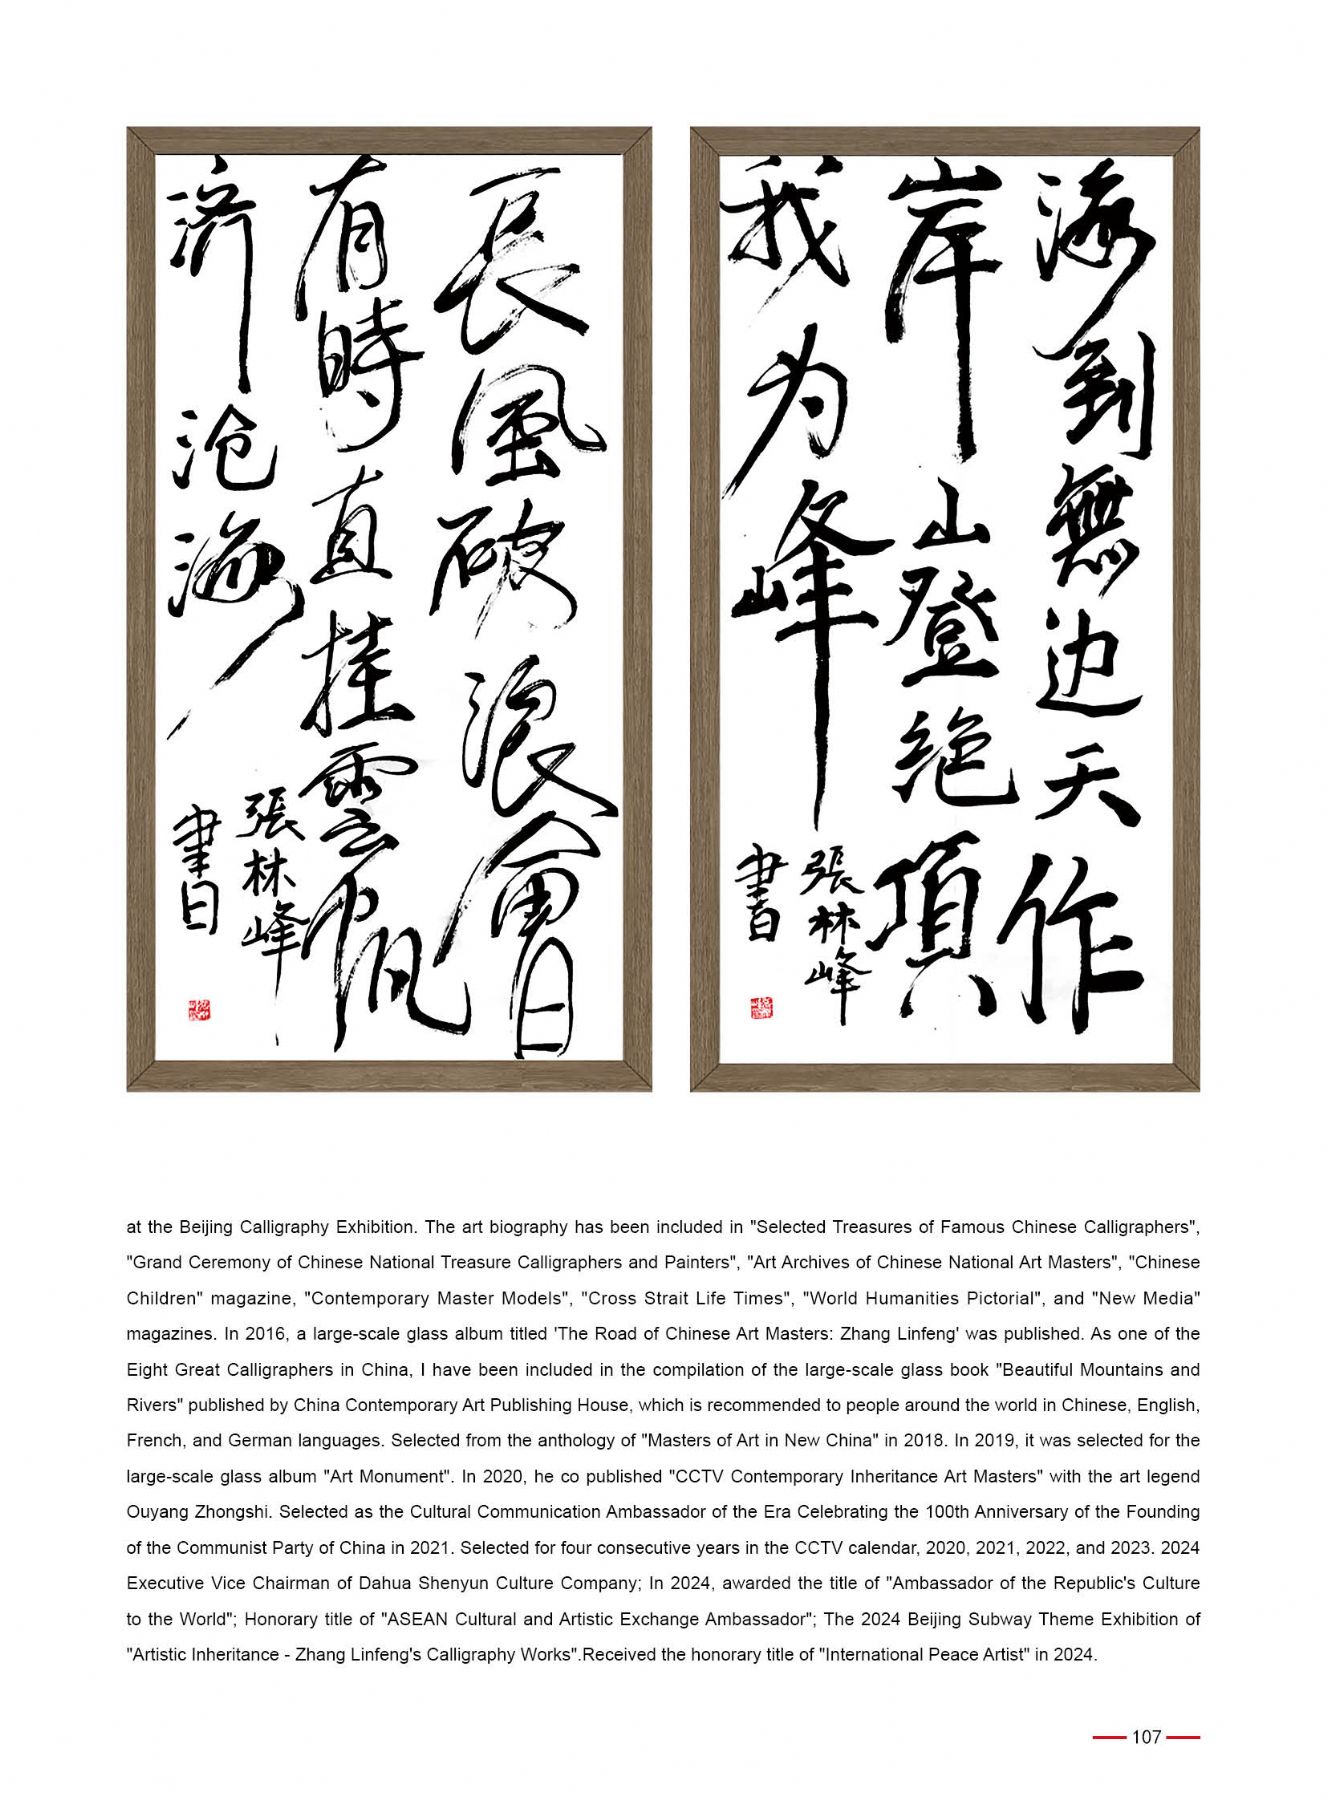 長風破浪會
有時直挂雲帆
济沧海
張林峰
書
海到無边天作
岸山登绝頂
我为峰
張林峰
書
at the Beijing Calligraphy Exhibition. The art biography has been included in "Selected Treasures of Famous Chinese Calligraphers",
"Grand Ceremony of Chinese National Treasure Calligraphers and Painters", "Art Archives of Chinese National Art Masters", "Chinese
Children" magazine, "Contemporary Master Models", "Cross Strait Life Times", "World Humanities Pictorial", and "New Media"
magazines. In 2016, a large-scale glass album titled 'The Road of Chinese Art Masters: Zhang Linfeng' was published. As one of the
Eight Great Calligraphers in China, I have been included in the compilation of the large-scale glass book "Beautiful Mountains and
Rivers" published by China Contemporary Art Publishing House, which is recommended to people around the world in Chinese, English,
French, and German languages. Selected from the anthology of "Masters of Art in New China" in 2018. In 2019, it was selected for the
large-scale glass album "Art Monument". In 2020, he co published "CCTV Contemporary Inheritance Art Masters" with the art legend
Ouyang Zhongshi. Selected as the Cultural Communication Ambassador of the Era Celebrating the 100th Anniversary of the Founding
of the Communist Party of China in 2021. Selected for four consecutive years in the CCTV calendar, 2020, 2021, 2022, and 2023. 2024
Executive Vice Chairman of Dahua Shenyun Culture Company; In 2024, awarded the title of "Ambassador of the Republic's Culture
to the World"; Honorary title of "ASEAN Cultural and Artistic Exchange Ambassador"; The 2024 Beijing Subway Theme Exhibition of
"Artistic Inheritance - Zhang Linfeng's Calligraphy Works".Received the honorary title of "International Peace Artist" in 2024.
107